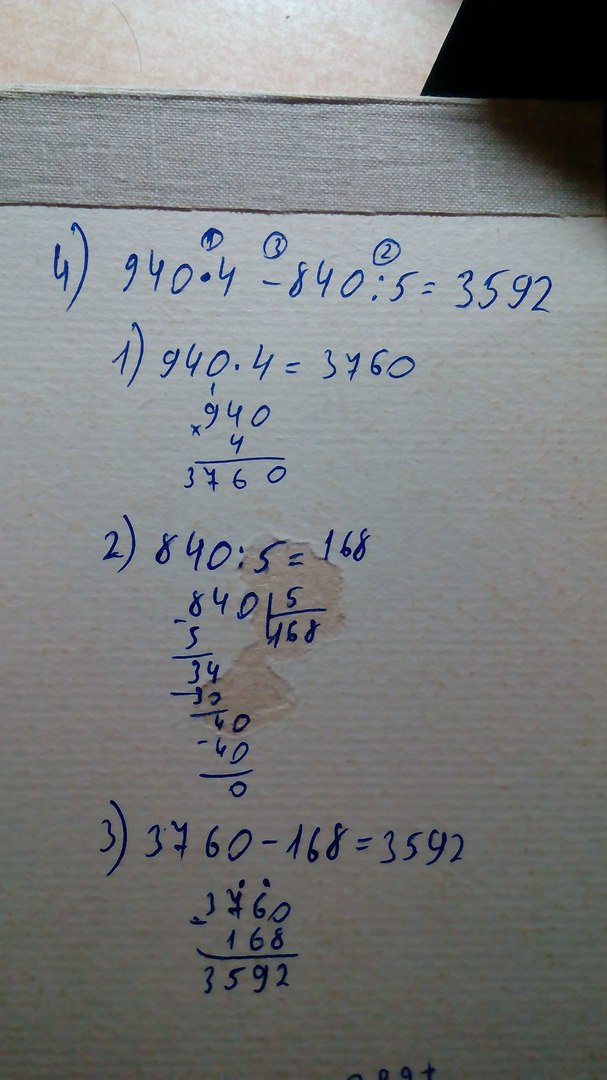 ① ③ ②
4) 940·4 - 840:5 = 3592
1) 940·4 = 3760
1
940
× 4
3760
2) 840:5 = 168
- 840 | 5
5 168
34
- 30
40
- 40
0
3) 3760 - 168 = 3592
- 3760
168
3592